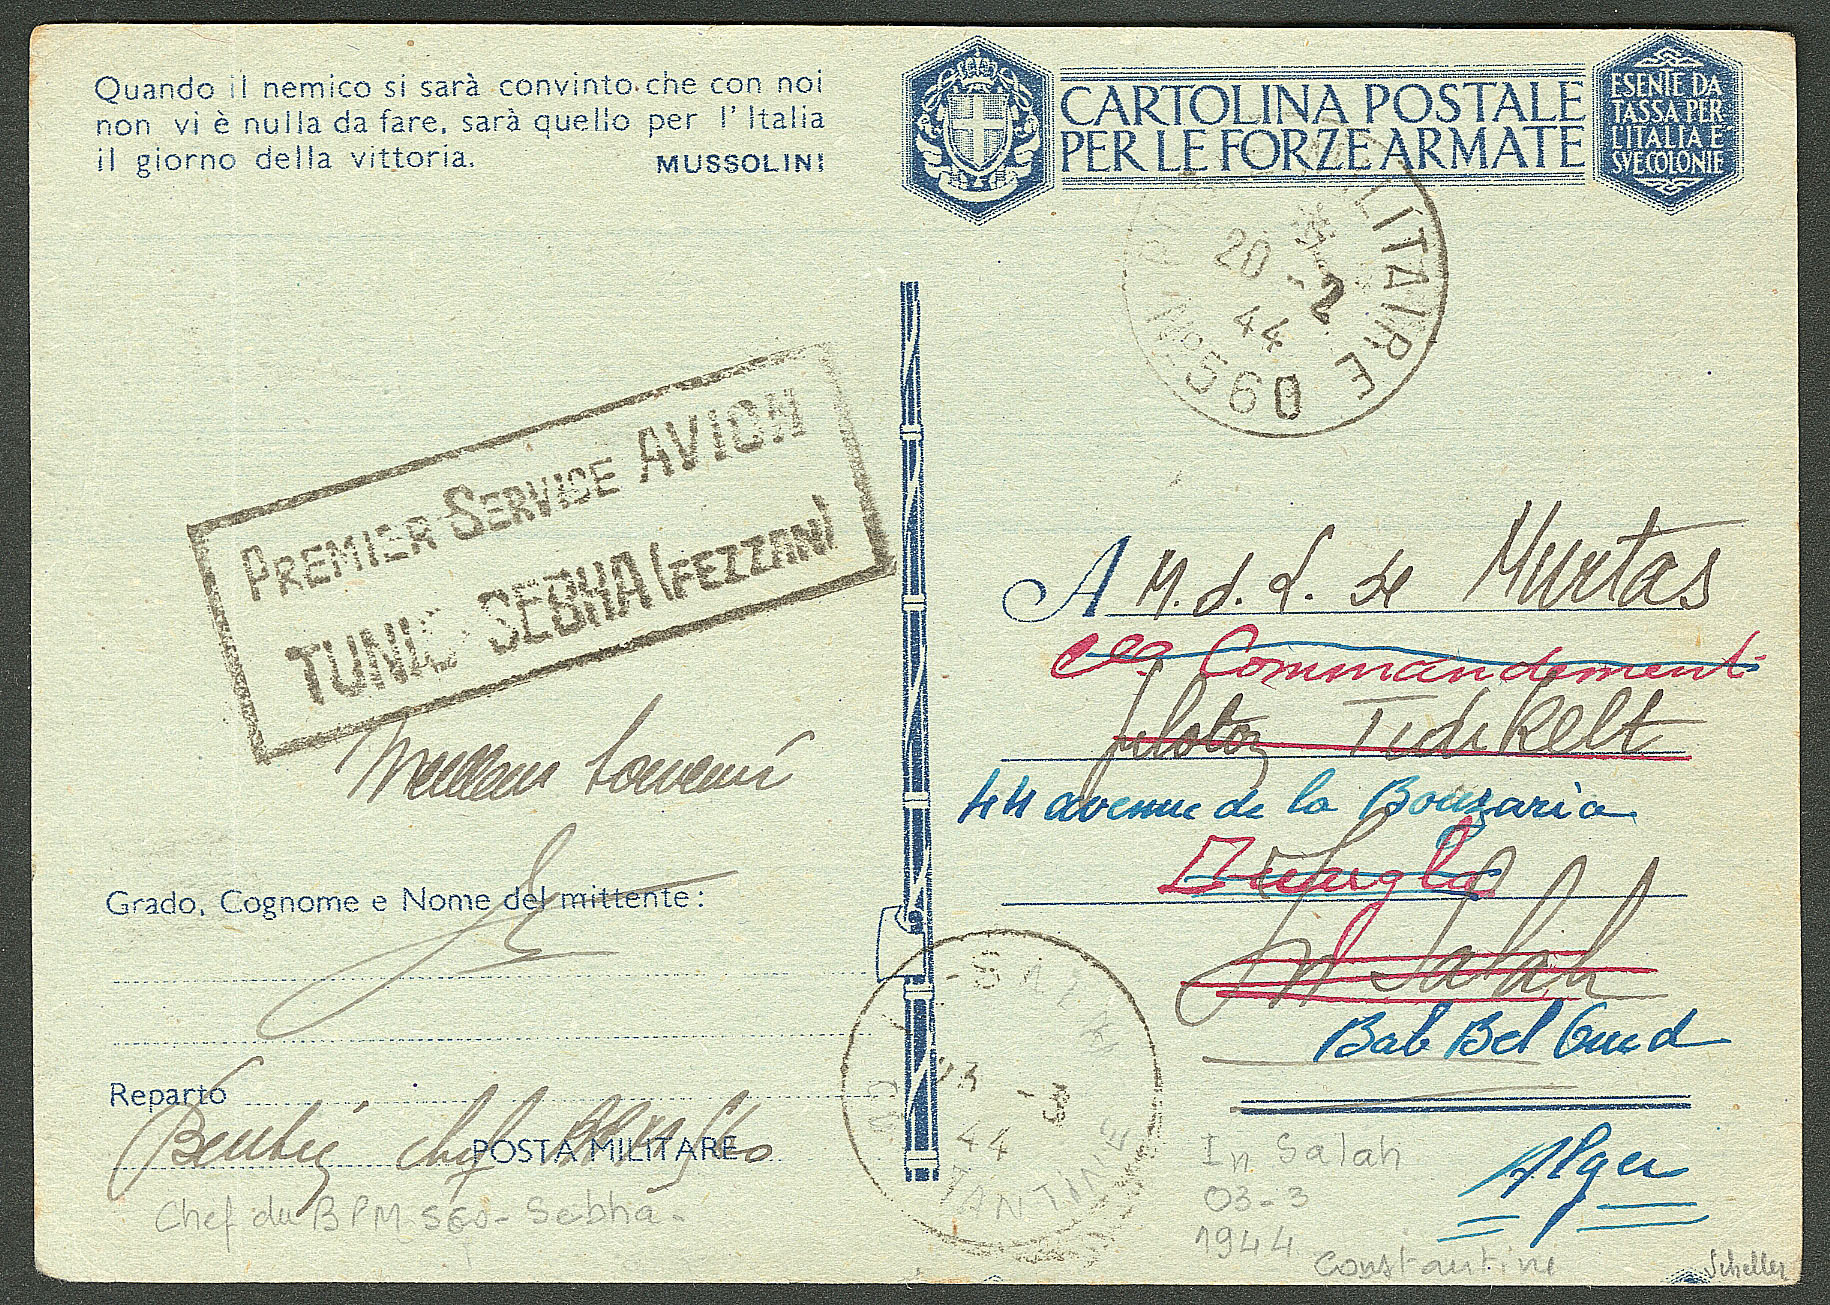 Quando il nemico si sarà convinto che con noi
non vi è nulla da fare, sarà quello per l'Italia
il giorno della vittoria. MUSSOLINI
CARTOLINA POSTALE
PER LE FORZE ARMATE
ESENTE DA
TASSA PER
L'ITALIA E
SVE COLONIE
MILITAIRE
20 2
44
Nº 560
PREMIER SERVICE AVION
TUNIS SEBHA (FEZZAN)
A M. d. L. de Murtas
Cie Commandement
Tidikelt
44 avenue de la Bouzaria
Ouargla
In Salah
Bab Bel Oued
Alger
souvenir
Grado, Cognome e Nome del mittente:
Reparto
POSTA MILITARE
chef
Chef du BPM 560 - Sebha -
IN-SALAH
3
44
TANTINE
In Salah
03-3
1944
Constantine
Scheller